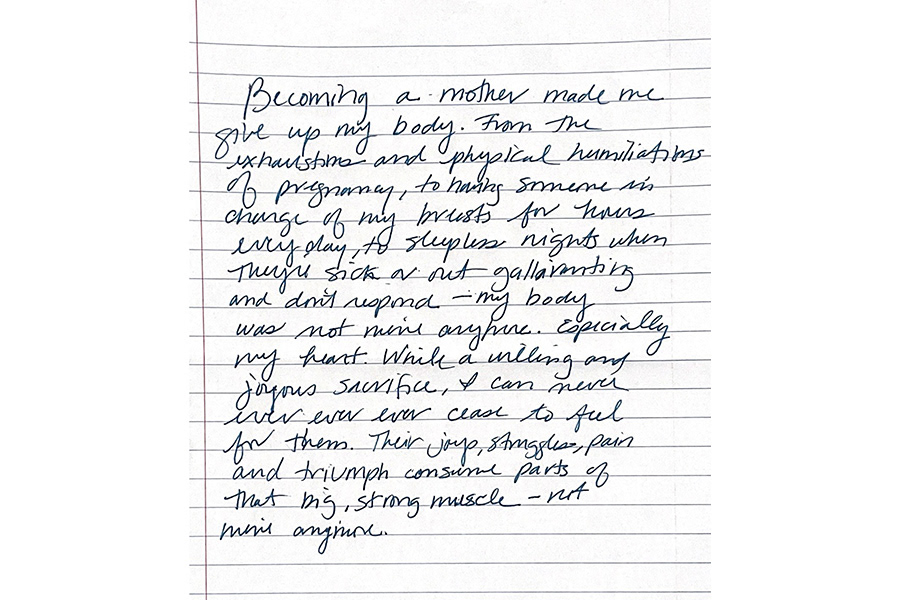 Becoming a mother made me
give up my body. From the
exhaustions and physical humiliations
of pregnancy, to having someone in
charge of my breasts for hours
every day, to sleepless nights when
they're sick or out gallavanting
and don't respond – my body
was not mine anymore. Especially
my heart. While a willing and
joyous sacrifice, I can never
ever ever ever cease to feel
for them. Their joys, struggles, pain
and triumph consume parts of
that big, strong muscle – not
mine anymore.